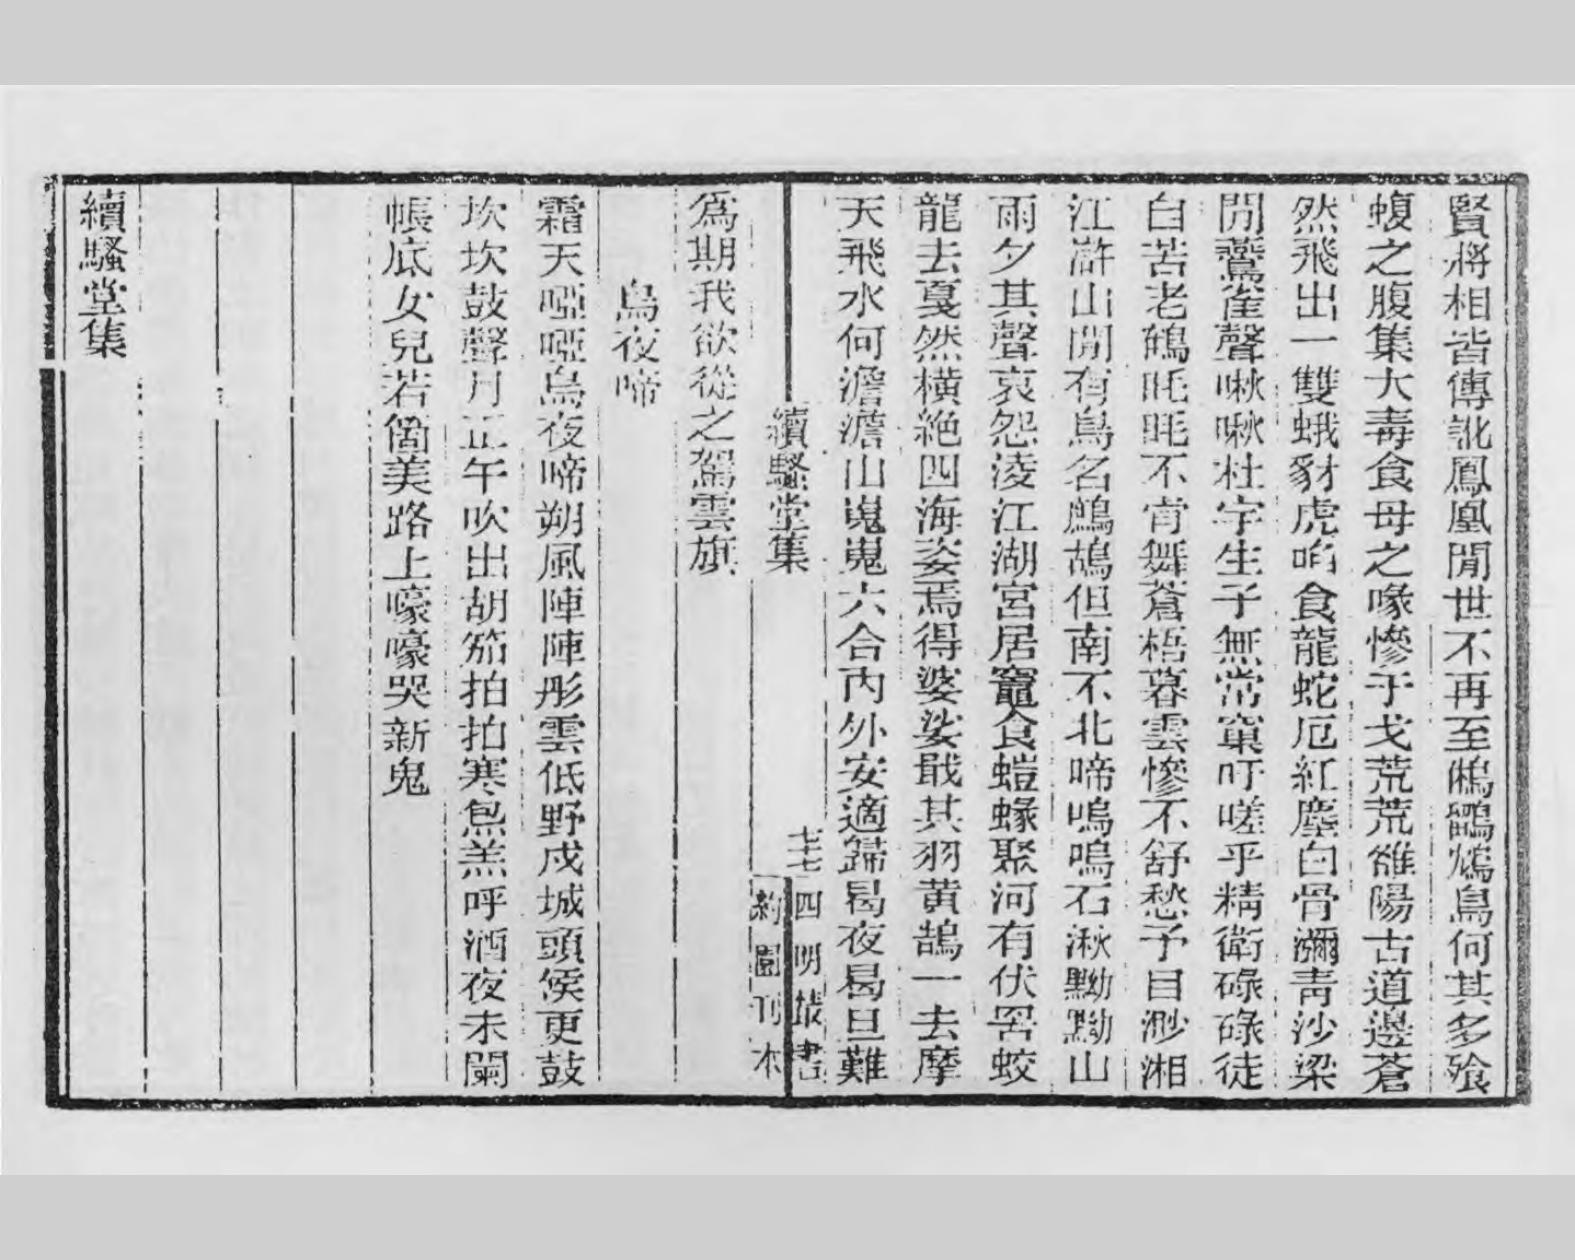 賢將相皆傳訛鳳凰閒世不再至鵂鶹鴆鳥何其多飱
蝮之腹集大毒食母之喙慘于戈荒荒雒陽古道邊蒼
然飛出一雙蛾豺虎啗食龍蛇厄紅塵白骨瀰青沙梁
閒鷰雀聲啾啾杜宇生子無常窠吁嗟乎精衛碌碌徒
白苦老鶴毦毦不肯舞蒼梧暮雲慘不舒愁予目渺湘
江滸山閒有鳥名鷓鴣但南不北啼嗚嗚石湫黝黝山
雨夕其聲哀怨淩江湖宮居竈食螘蝝聚河有伏罟蛟
龍去戛然橫絶四海姿焉得婆娑戢其羽黃鵠一去摩
天飛水何澹澹山嵬嵬六合內外安適歸曷夜曷旦難
續騷堂集
七七
四明叢書
約園刊本
爲期我欲從之駕雲旗
烏夜啼
霜天啞啞烏夜啼朔風陣陣彤雲低野戍城頭倐更鼓
坎坎鼓聲月正午吹出胡笳拍拍寒炰羔呼酒夜未闌
帳底女兒若箇美路上嚎嚎哭新鬼
續騷堂集